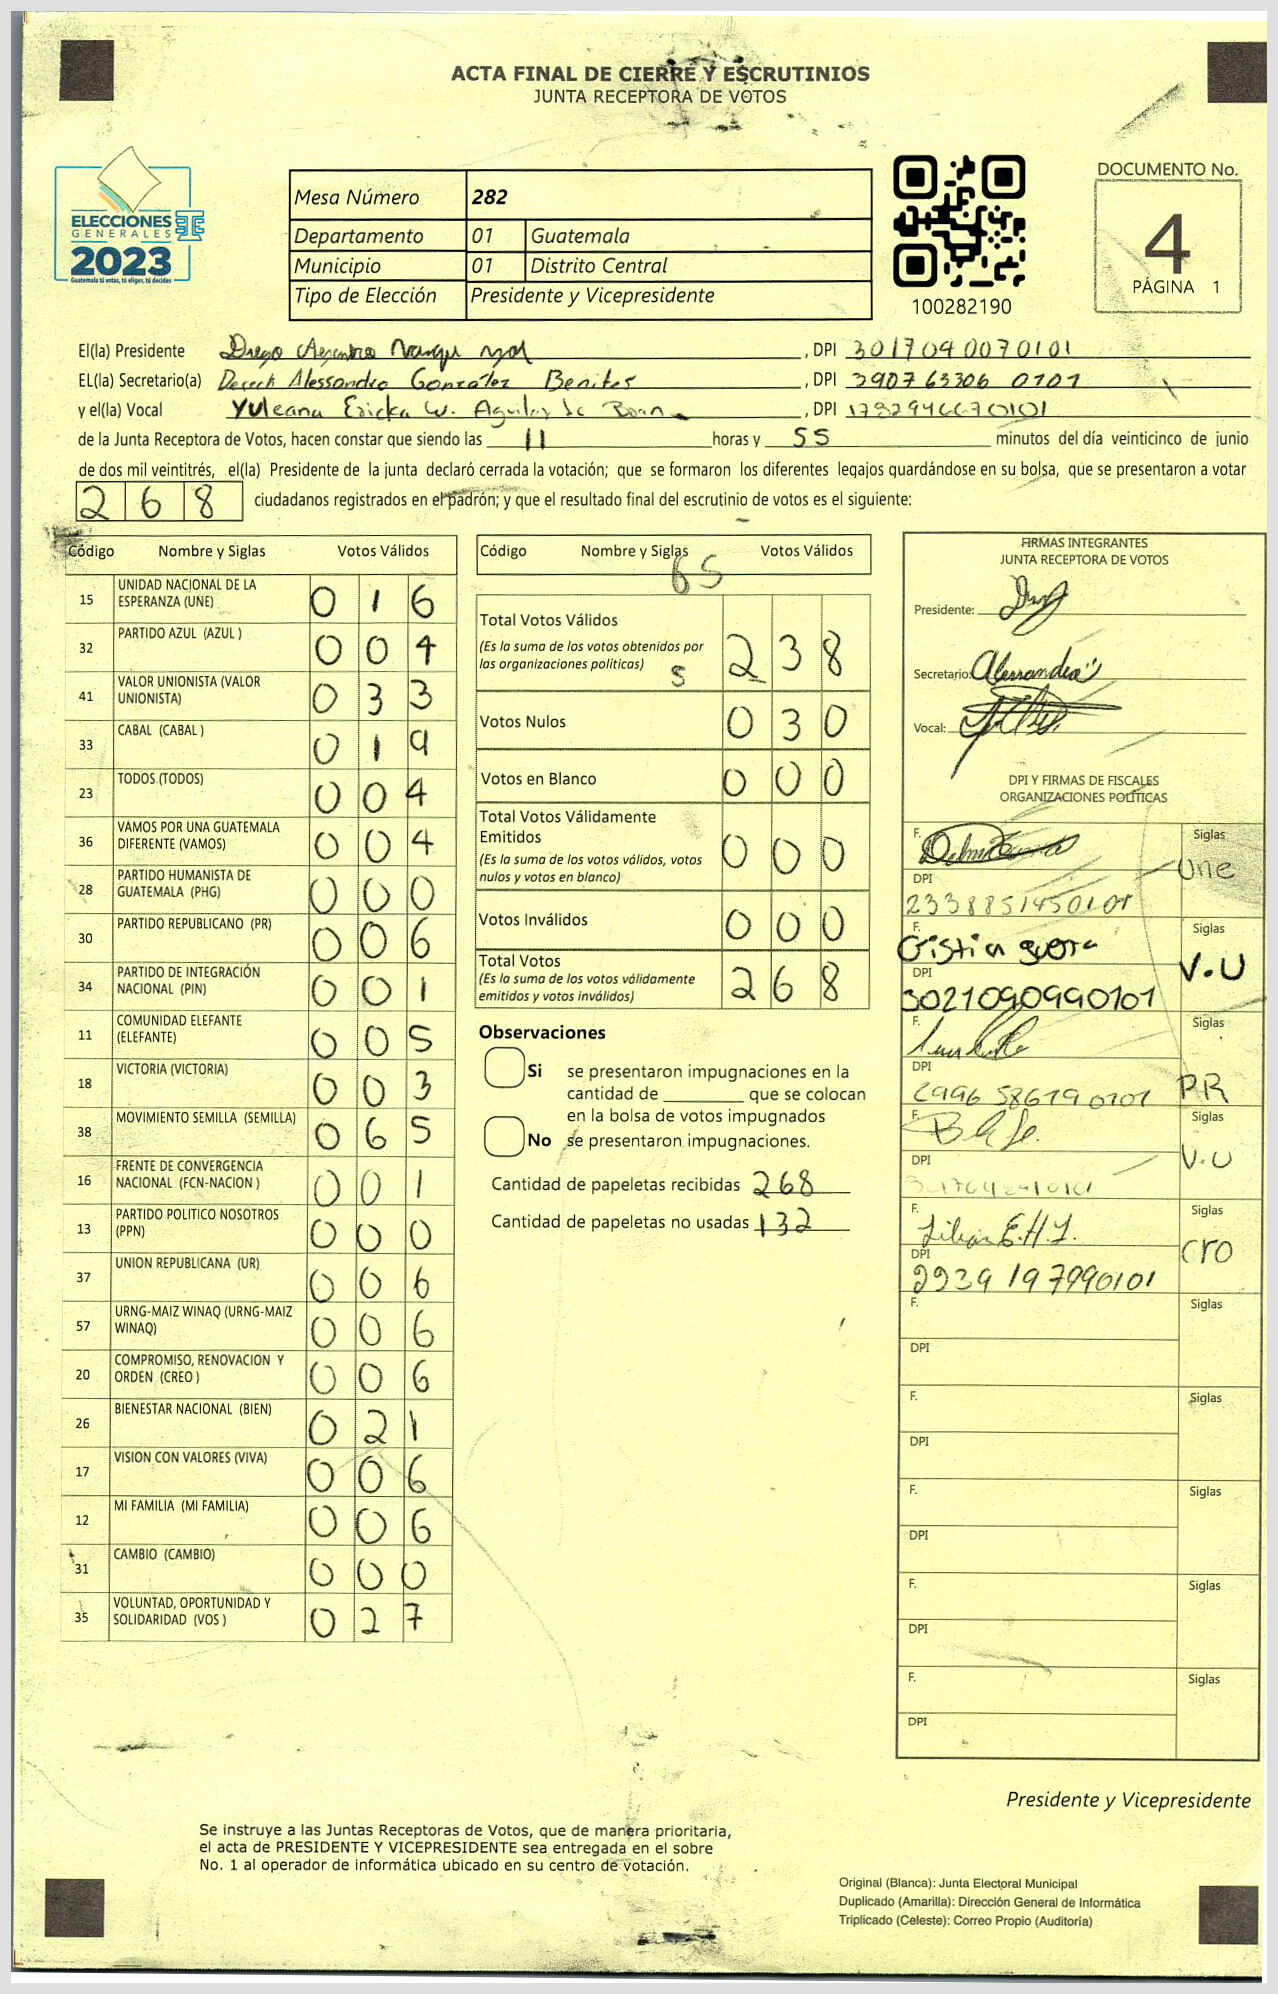 ACTA FINAL DE CIERRE Y ESCRUTINIOS
JUNTA RECEPTORA DE VOTOS
ELECCIONES
GENERALES
2023
Guatemala tú votas, tú eliges, tú decides
Mesa Número 282
Departamento 01 Guatemala
Municipio 01 Distrito Central
Tipo de Elección Presidente y Vicepresidente
100282190
DOCUMENTO No.
4
PÁGINA 1
El(la) Presidente Diego , DPI 3017040070101
EL(la) Secretario(a) Dereck Alessandro González Benites , DPI 390763306 0101
y el(la) Vocal Yuleana Ericka W. Aguilar de , DPI
de la Junta Receptora de Votos, hacen constar que siendo las 11 horas y 55 minutos del día veinticinco de junio
de dos mil veintitrés, el(la) Presidente de la junta declaró cerrada la votación; que se formaron los diferentes legajos guardándose en su bolsa, que se presentaron a votar
268 ciudadanos registrados en el padrón; y que el resultado final del escrutinio de votos es el siguiente:
Código Nombre y Siglas Votos Válidos
15 UNIDAD NACIONAL DE LA ESPERANZA (UNE) 016
32 PARTIDO AZUL (AZUL ) 004
41 VALOR UNIONISTA (VALOR UNIONISTA) 033
33 CABAL (CABAL ) 019
23 TODOS (TODOS) 004
36 VAMOS POR UNA GUATEMALA DIFERENTE (VAMOS) 004
28 PARTIDO HUMANISTA DE GUATEMALA (PHG) 000
30 PARTIDO REPUBLICANO (PR) 006
34 PARTIDO DE INTEGRACIÓN NACIONAL (PIN) 001
11 COMUNIDAD ELEFANTE (ELEFANTE) 005
18 VICTORIA (VICTORIA) 003
38 MOVIMIENTO SEMILLA (SEMILLA) 065
16 FRENTE DE CONVERGENCIA NACIONAL (FCN-NACION ) 001
13 PARTIDO POLITICO NOSOTROS (PPN) 000
37 UNION REPUBLICANA (UR) 006
57 URNG-MAIZ WINAQ (URNG-MAIZ WINAQ) 006
20 COMPROMISO, RENOVACION Y ORDEN (CREO ) 006
26 BIENESTAR NACIONAL (BIEN) 021
17 VISION CON VALORES (VIVA) 006
12 MI FAMILIA (MI FAMILIA) 006
31 CAMBIO (CAMBIO) 000
35 VOLUNTAD, OPORTUNIDAD Y SOLIDARIDAD (VOS ) 027
Código Nombre y Siglas Votos Válidos
65
Total Votos Válidos 238
(Es la suma de los votos obtenidos por
las organizaciones políticas) S
Votos Nulos 030
Votos en Blanco 000
Total Votos Válidamente
Emitidos 000
(Es la suma de los votos válidos, votos
nulos y votos en blanco)
Votos Inválidos 000
Total Votos 268
(Es la suma de los votos válidamente
emitidos y votos inválidos)
Observaciones
Si se presentaron impugnaciones en la
cantidad de ________ que se colocan
en la bolsa de votos impugnados
No se presentaron impugnaciones.
Cantidad de papeletas recibidas 268
Cantidad de papeletas no usadas 132
FIRMAS INTEGRANTES
JUNTA RECEPTORA DE VOTOS
Presidente:
Secretario: Alessandro
Vocal:
DPI Y FIRMAS DE FISCALES
ORGANIZACIONES POLÍTICAS
F. Siglas
Une
DPI
2338851450101
F. Cristian guerra Siglas
V.U
DPI
3021090990101
F. Siglas
PR
DPI
2996 58619 0101
F. Siglas
V.U
DPI
F. Lilian E.H.L. Siglas
cro
DPI
2239 197990101
F. Siglas
DPI
F. Siglas
DPI
F. Siglas
DPI
F. Siglas
DPI
F. Siglas
DPI
Presidente y Vicepresidente
Se instruye a las Juntas Receptoras de Votos, que de manera prioritaria,
el acta de PRESIDENTE Y VICEPRESIDENTE sea entregada en el sobre
No. 1 al operador de informática ubicado en su centro de votación.
Original (Blanca): Junta Electoral Municipal
Duplicado (Amarilla): Dirección General de Informática
Triplicado (Celeste): Correo Propio (Auditoría)